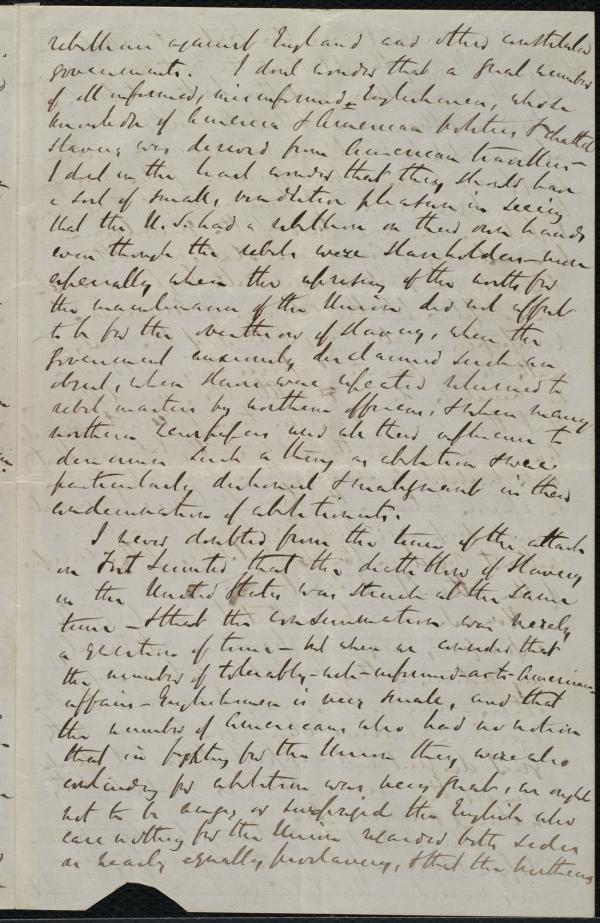 rebellion against England and other constituted
governments. I dont wonder that a great number
of ill informed, misinformed Englishmen, whose
knowledge of America & American politics & chattel
slavery was derived from American travellers—
I dont in the least wonder that they should have
a sort of small, vindictive pleasure in seeing
that the U.S. had a rebellion on their own hands
even though the rebels were slaveholders—more
especially when the uprising of the north for
the maintenance of the Union did not affect
to be for the overthrow of slavery, when the
government anxiously disclaimed such an
object, when slaves were repeated returned to
rebel masters by northern officers, & when many
northern newspapers used all their influence to
denounce such a thing as abolition & were
particularly dishonest & malignant in their
condemnation of abolitionists.
I never doubted from the time of the attack
on Fort Sumter that the death blow of slavery
in the United States was struck at the same
time — & that the consummation was merely
a question of time — but when we consider that
the number of tolerably-well-informed-as-to-American-
affairs-Englishmen is very small, and that
the number of Americans who had no notion
that in fighting for the Union they were also
contending for abolition was very great, we ought
not to be angry or surprised the English who
care nothing for the Union regarded both sides
as nearly equally proslavery, & that the northern